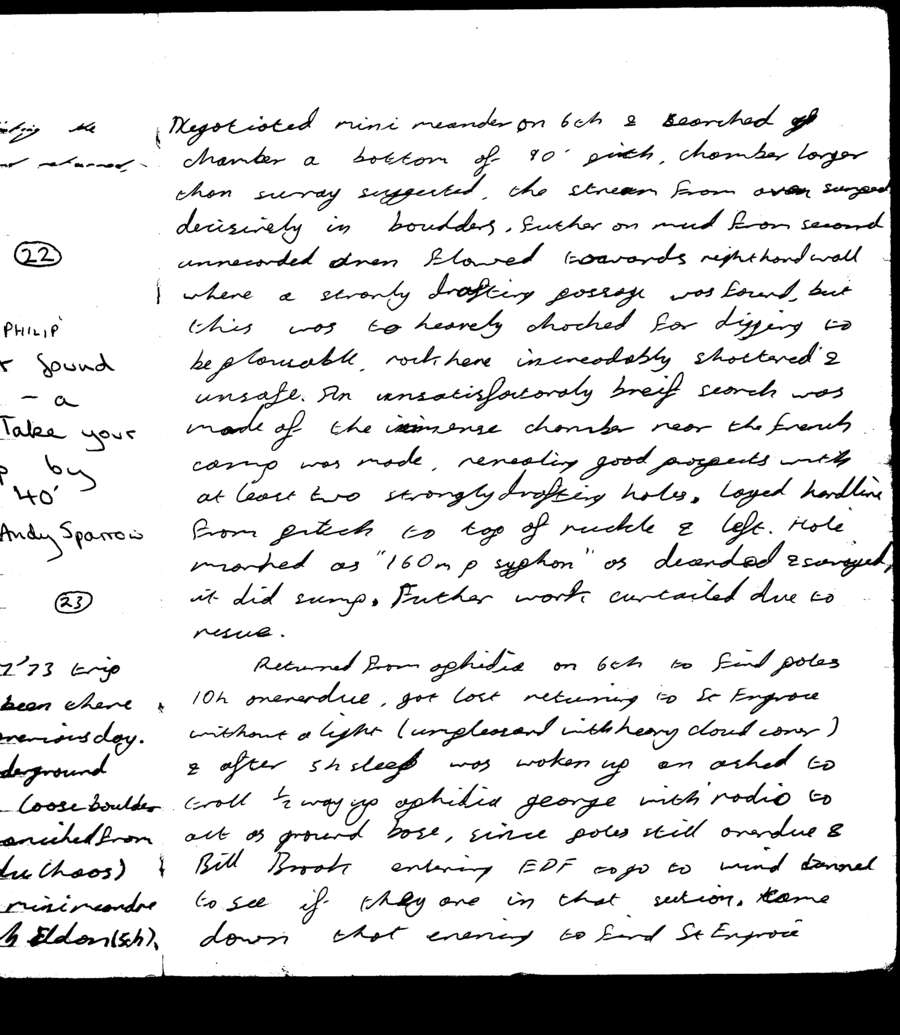 the
returned,
22
PHILIP
found
- a
Take your
by
40'
Andy Sparrow
23
'73 trip
been there
previous day.
derground
Loose boulder
from
du Chaos)
mini meandre
Eldon (5h),
Negotioted mini meander on 6th & searched
chamber a bottom of 90' pitch, chamber larger
than survay suggested, the stream from
decisively in boulders, futher on mud from second
unrecorded aven flowed towards right hand wall
where a stronly drafting passage was found, but
this was to heavely choched for digging to
be plausable, rock here increadably shattered &
unsafe. An unsatisfactoraly breif search was
made of the immense chamber near the french
camp was made, revealing good prospects with
at least two strongly drafting holes. Layed hardline
from pitch to top of ruckle & left. Hole
marked as "160m p syphon" as decended & surveyed,
it did sump. Futher work curtailed due to
resue.
Returned from ophidia on 6th to find poles
10h overerdue, got lost returning to St Engrace
without a light (unpleasend with heavy cloud cover)
& after 5h sleep was woken up an ashed to
troll ½ way up ophidia george with radio to
act as ground base, since poles still overdue &
Bill Brook entering EDF to go to wind tunnel
to see if they are in that section. Came
down that evening to find St Engrace